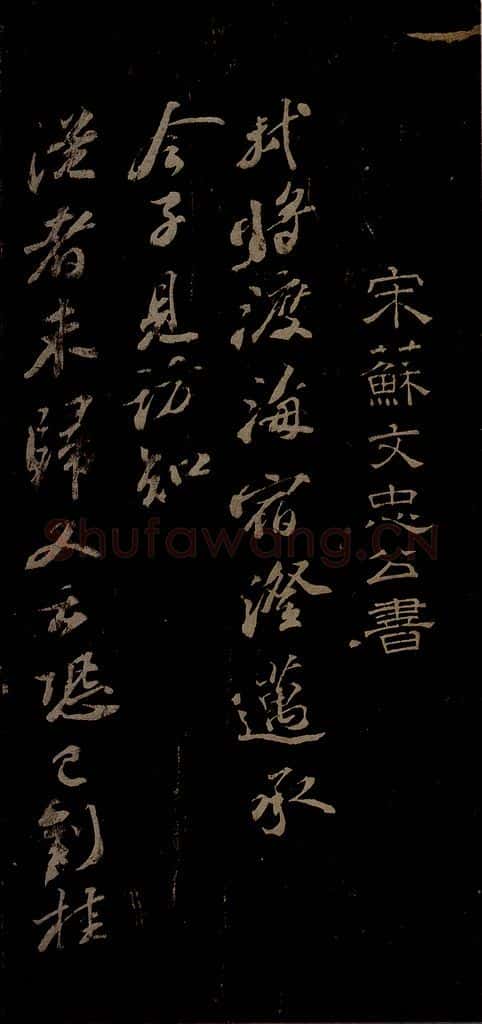 宋蘇文忠公書
軾將渡海宿澄邁承
令子見訪知
從者未歸又云恐已到桂
Shufawang.CN